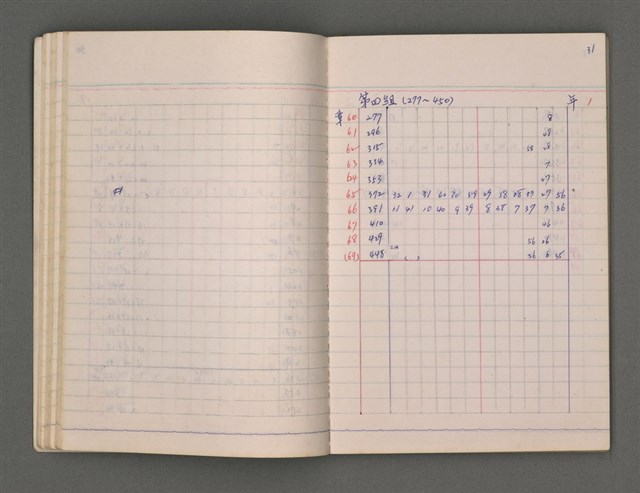 31
第四組 (277～450) 年 1
章 60 277 8
61 296 28
62 315 18 8
63 334 7
64 353 27
65 372 32 1 31 30 29 28 27 56
66 391 11 41 10 40 9 39 8 38 7 37 7 36
67 410 26
68 429 56 26
(69) 448 36 6 35